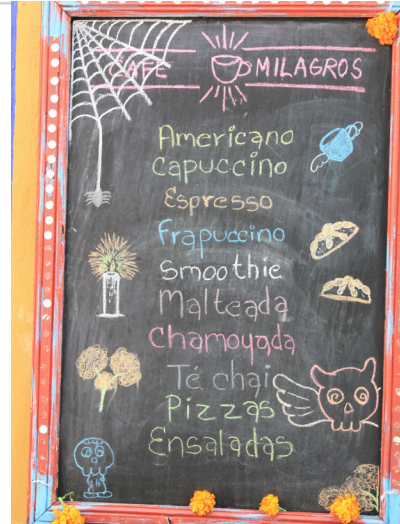 CAFE MILAGROS
Americano
Capuccino
Espresso
Frapuccino
Smoothie
Malteada
Chamoyada
Té chai
Pizzas
Ensaladas